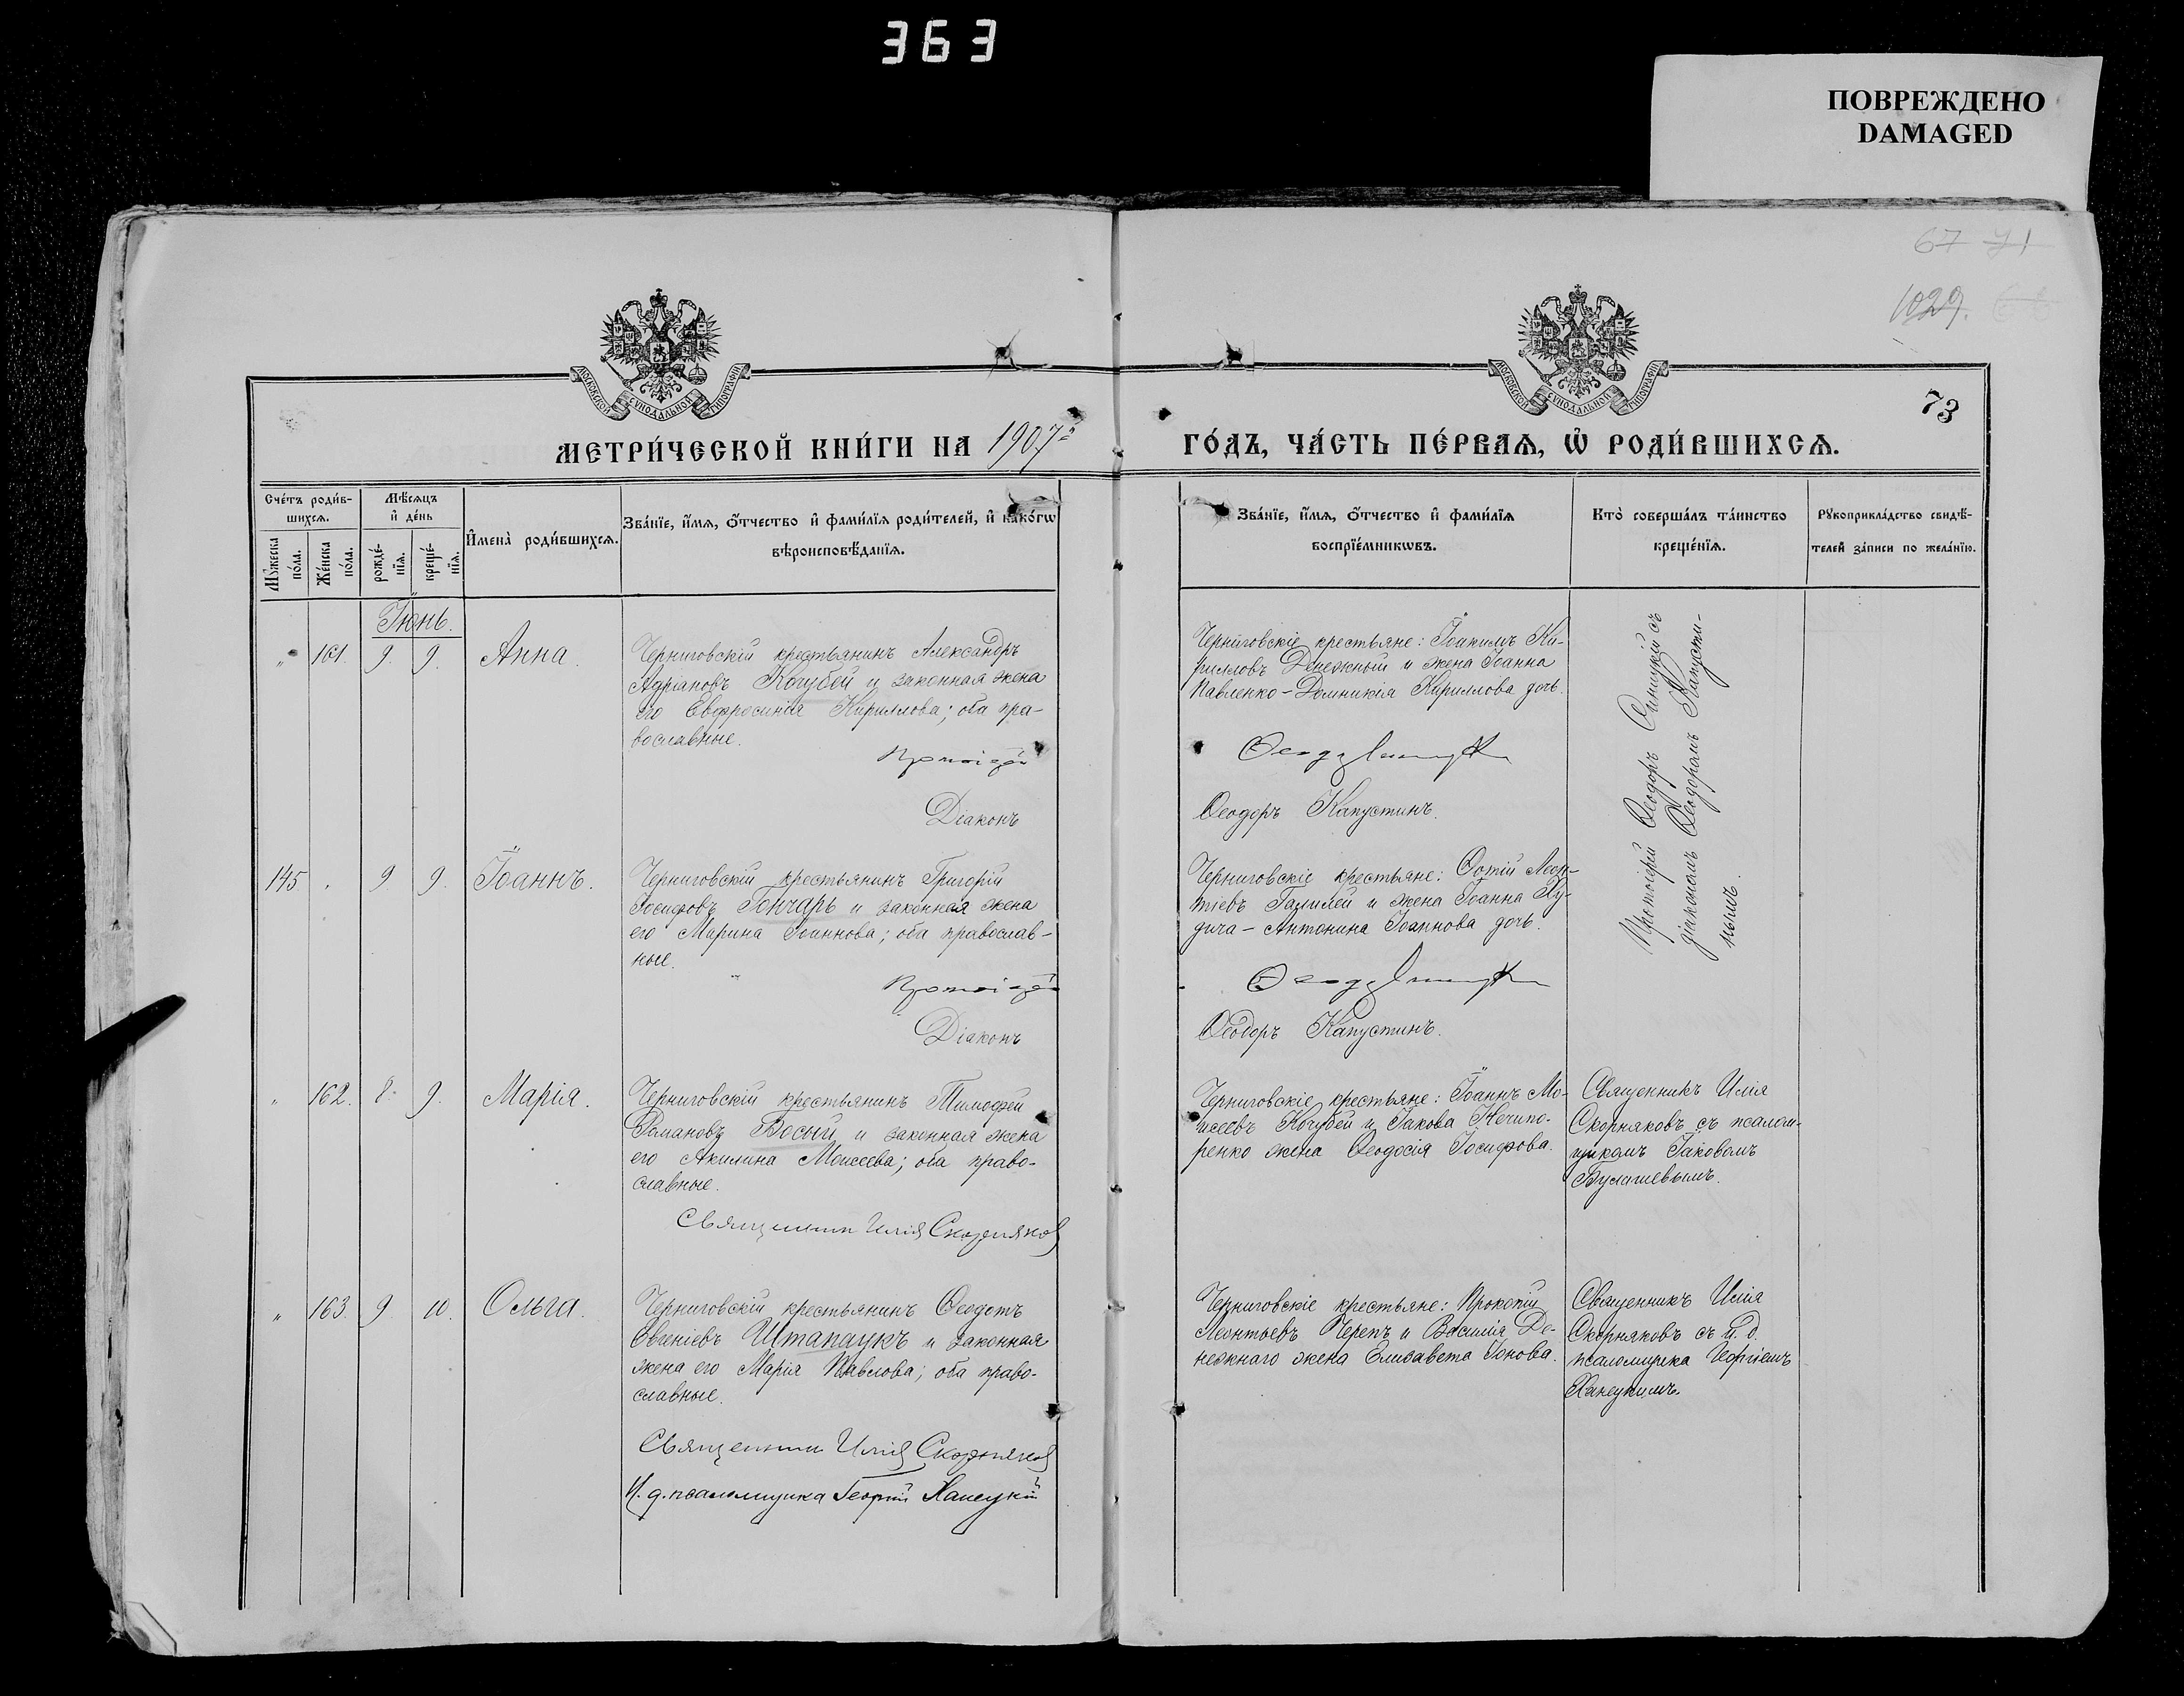 363
ПОВРЕЖДЕНО
DAMAGED
67 71
1029.
73
МОСКОВСКОЙ СѴНОДАЛЬНОЙ ТИПОГРАФІИ
МОСКОВСКОЙ СѴНОДАЛЬНОЙ ТИПОГРАФІИ
МЕТРИ́ЧЕСКОЙ КНИ́ГИ НА 1907й
ГО́ДЪ, ЧА́СТЬ ПЕ́РВАѦ, Ѡ҆ РОДИ́ВШИХСѦ.
Сче́тъ роди́в-
шихсѧ.
Мѣ́сѧцъ
и҆ де́нь
И҆мена̀ роди́вшихсѧ.
Зва́нїе, и҆́мѧ, ѻ҆́тчество и҆ фами́лїѧ роди́телей, и҆ како́гѡ
вѣроисповѣ́данїѧ.
Мꙋ́жеска
по́ла.
Же́нска
по́ла.
рожде́-
нїѧ.
креще́-
нїѧ.
Зва́нїе, и҆́мѧ, ѻ҆́тчество и҆ фами́лїѧ
воспрїе́мникѡвъ.
Кто̀ соверша́лъ та́инство
креще́нїѧ.
Рꙋкоприкла́дство свидѣ́-
телей за́писи по жела́нїю.
Іюнь.
„ 161. 9. 9. Анна.
Черниговскій крестьянинъ Александръ
Адріановъ Кочубей и законная жена
его Евфросинія Кириллова; оба пра-
вославные.
Протоіерей
Діаконъ
Черниговскіе крестьяне: Іоакимъ Ки-
рилловъ Денежный и жена Іоанна
Павленко-Домникія Кириллова дочь.
Ѳеодоръ Капустинъ.
Протоіерей Ѳеодоръ съ
діакономъ Ѳеодоромъ Капусти-
нымъ.
145 „ 9 9. Іоаннъ.
Черниговскій крестьянинъ Григорій
Іосифовъ Гончаръ и законная жена
его Марина Іоаннова; оба православ-
ные.
Протоіерей
Діаконъ
Черниговскіе крестьяне: Фотій Леон-
тіевъ Галилей и жена Іоанна Ку-
дича - Антонина Іоаннова дочь.
Ѳеодоръ Капустинъ.
„ 162. 8. 9. Марія.
Черниговскій крестьянинъ Тимофей
Романовъ Босый и законная жена
его Акилина Моисеева; оба право-
славные.
Священникъ Илія Скорняковъ
Черниговскіе крестьяне: Іоаннъ Мо-
исеевъ Кочубей и Іакова Нечипо-
ренко жена Ѳеодосія Іосифова.
Священникъ Илія
Скорняковъ съ псалом-
щикомъ Іаковомъ
Булашевымъ.
„ 163. 9. 10. Ольга.
Черниговскій крестьянинъ Ѳеодотъ
Евгеніевъ Штапаукъ и законная
жена его Марія Павлова; оба право-
славные.
Священникъ Илія Скорняковъ
И. д. псаломщика Георгій Ханецкій
Черниговскіе крестьяне: Прокопій
Леонтьевъ Черепъ и Василія Де-
нежнаго жена Елисавета Іонова.
Священникъ Илія
Скорняковъ съ и. д.
псаломщика Георгіемъ
Ханецкимъ.